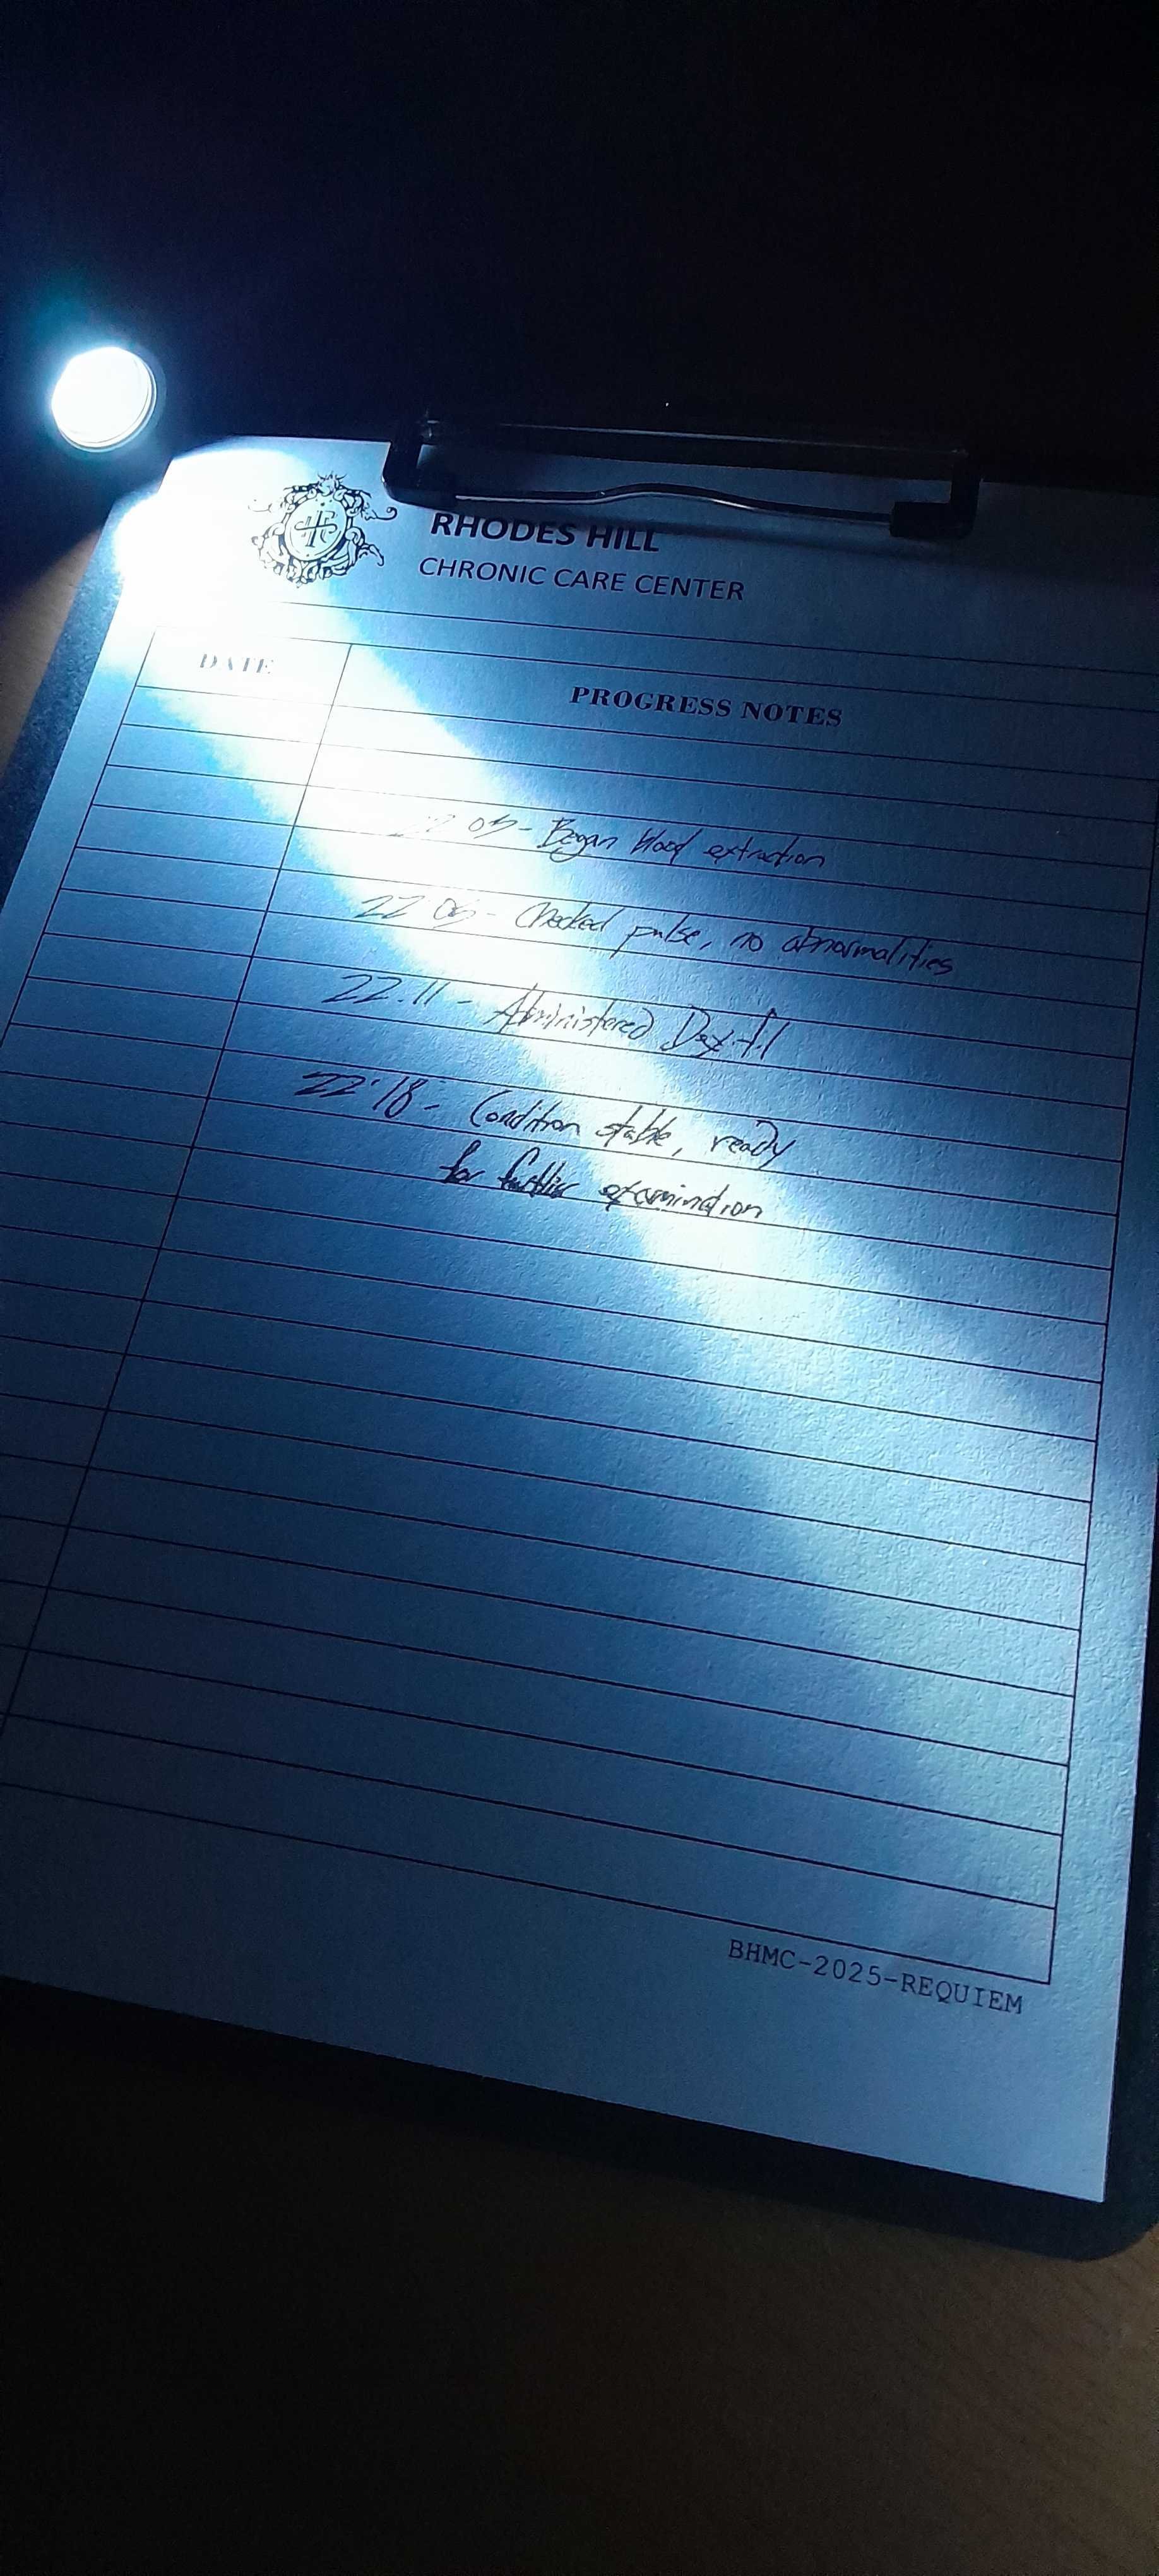 RHODES HILL
CHRONIC CARE CENTER
DATE
PROGRESS NOTES
Began blood extraction
Checked pulse, no abnormalities
22.11 - Administered
22:18 - Condition stable, ready
for further examination
BHMC-2025-REQUIEM